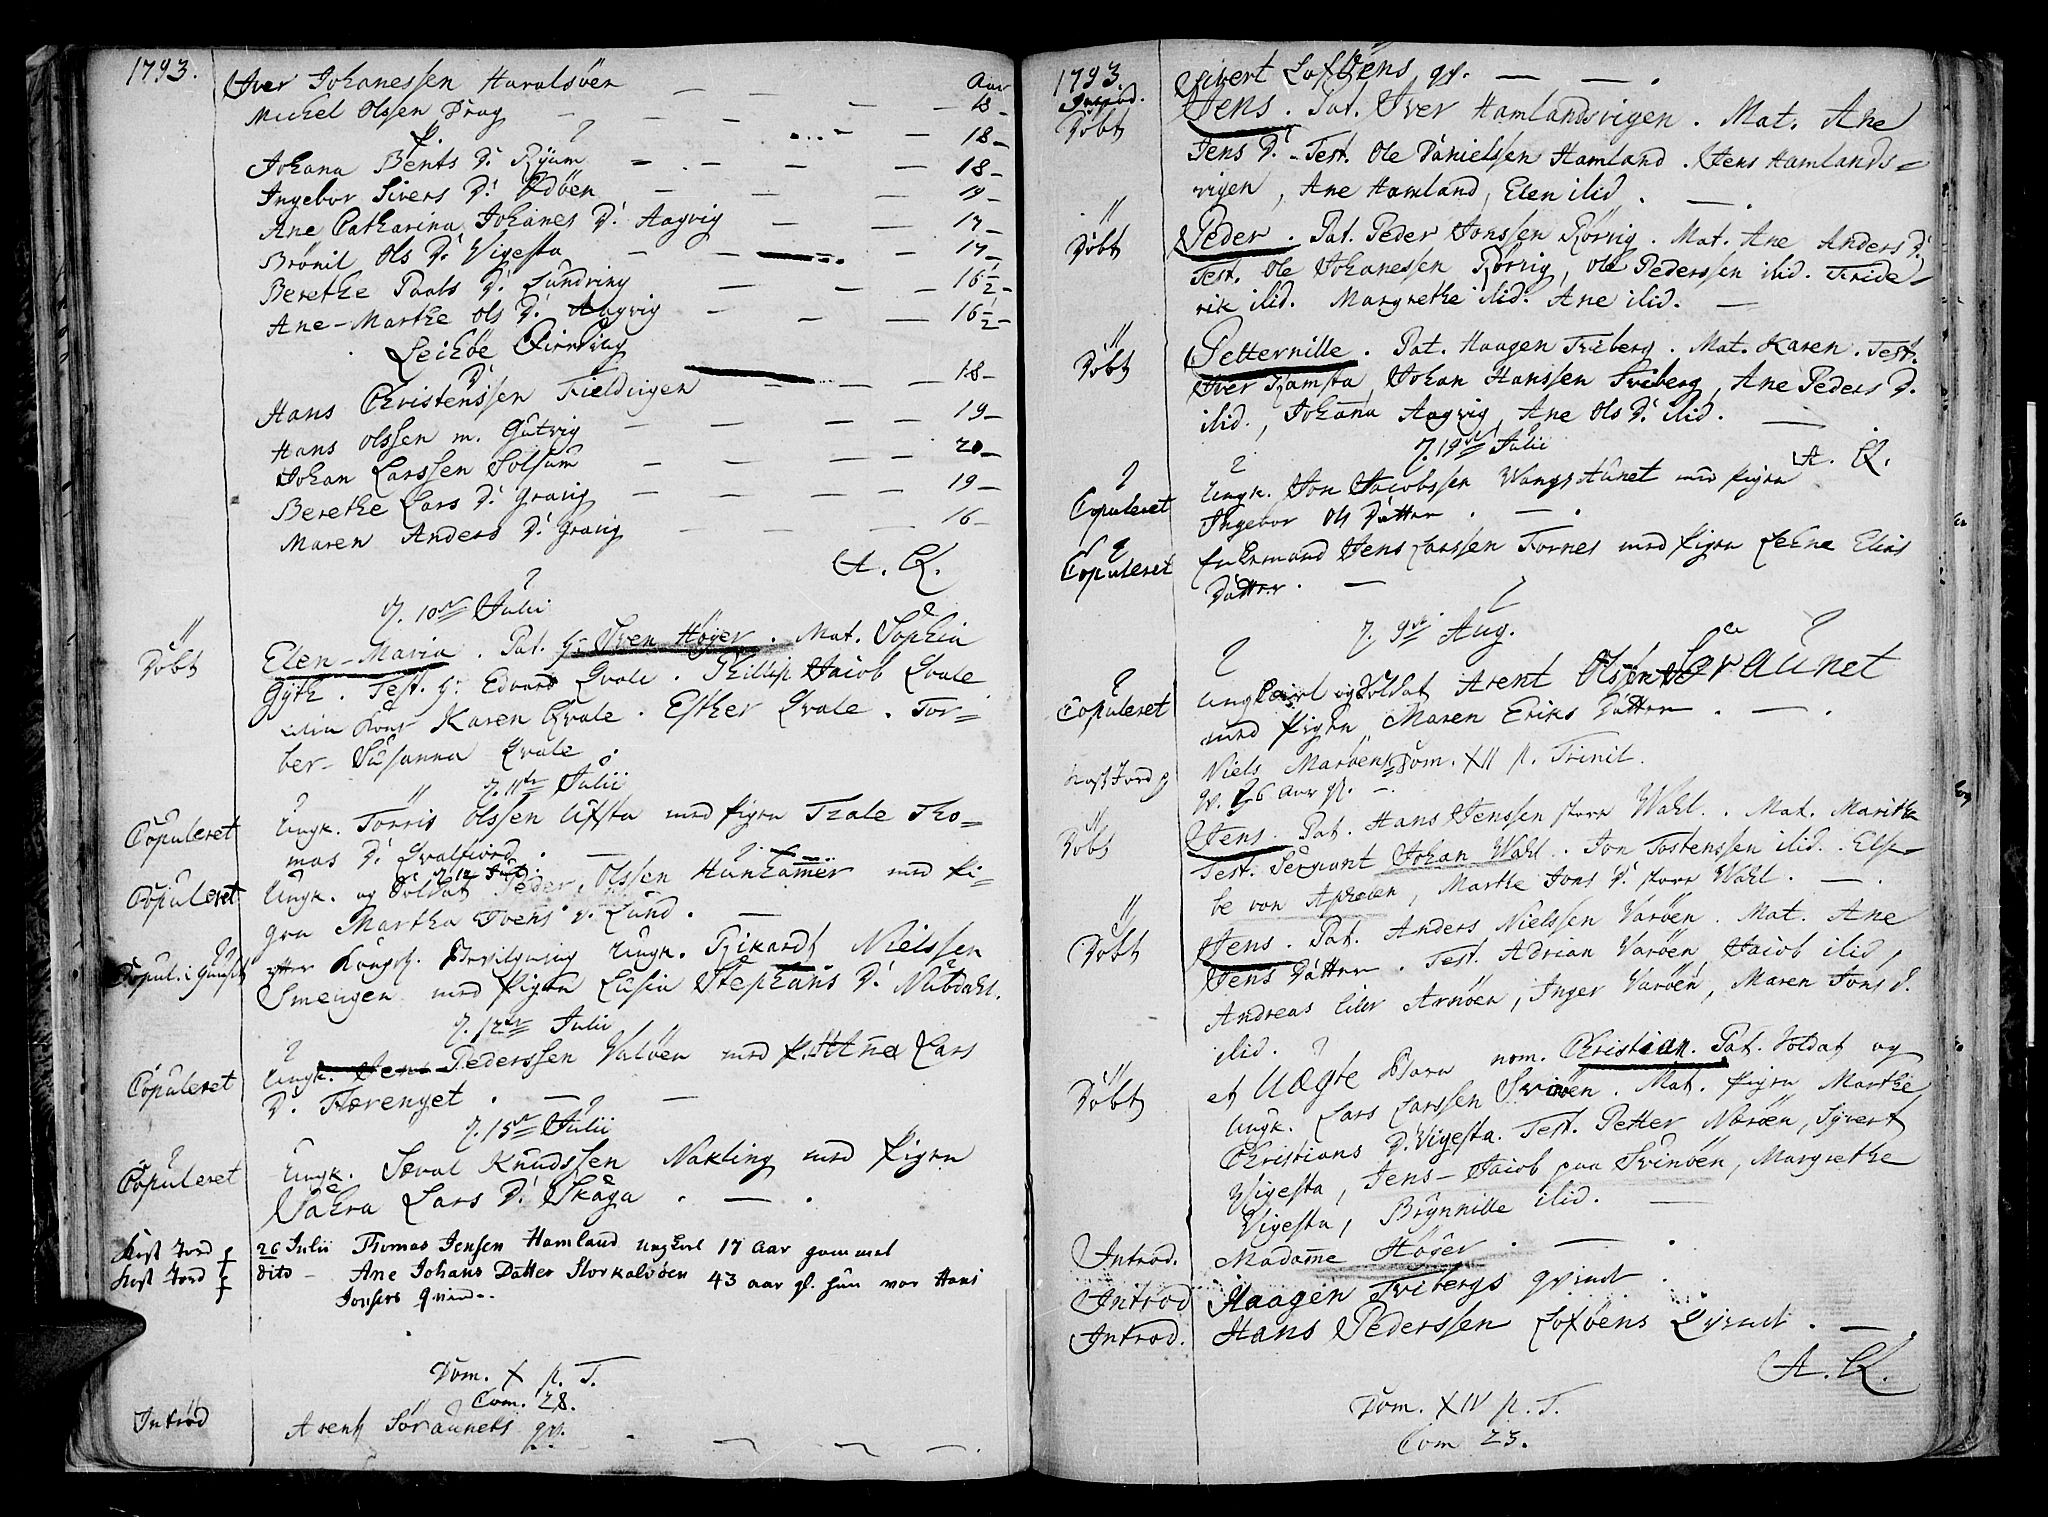 1793.
Iver Johanessen Haralsöen Aar
Michel Olssen Drag 18
P. 18
Johana Bents D. Ryum 18
Ingebor Sivers D. Edöen 19
Ane Catharina Johanes D. Aagvig 17
Brönil Ols D. Vigesta 17
Berethe Paals D. Lundring 16½
Ane-Marthe Ols D. Aagvig 16½
Leichöe
D.
Hans Christenssen Fieldvigen 18
Hans Olssen m. Gutvig 19
Johan Larssen Solsum 20
Berethe Lars D. Gravig 19
Maren Anders D. Gravig 16
A. CL.
d. 10de Julii
Döbt Elen-Maria. Pat. Hr Sven Höyer. Mat. Sophia
Gyth. Test. Hr Edvard Qvale. Phillip Jacob Qvale
min Kone Karen Qvale. Esther Qvale. Tor-
ber-Susanna Qvale.
d. 11te Julii
Copuleret Ungk. Torris Olssen Ufsta med Pigen Trale Tho-
mas D. Qvalfiord.
d. 12 Juli
Copuleret Ungk. og Soldat Peder Olssen Hunhamer med Pi-
gen Martha Ivens D. Lund.
Copul. i Huset efter Kongel. Bevilgning Ungk. Rikardt Nielssen
Smengen med Pigen Lusia Stephans D. Nubdahl.
d. 12te Julii
Copuleret Ungk. Jens Pederssen Valöen med P. Ana Lars
D. Flærenget.
d. 15de Julii
Copuleret Ungk. Sæval Knudssen Nakling med Pigen
Sahra Lars D. Skaga.
Kast Jord p 26 Julii Thomas Jensen Hamland Ungkarl 17 aar gammel
Kast Jord p dito Ane Johans Datter Storkalvöen 43 aar gl. hun var Hans
Jonsens Qvin
Dom. X p. T.
Com. 28.
Introd Arent Söraunets qv.
1793.
Introd. Sivert Loföens, qv.
Döbt Jens. Pat. Iver Hamlandsvigen. Mat. Ane
Jens D. Test. Ole Danielssen Hamland. Jens Hamlands-
vigen, Ane Hamland, Elen ibid.
Döbt Peder. Pat. Peder Jonssen Rörvig. Mat. Ane Anders D.
Test. Ole Johanessen Rörvig, Ole Pederssen ibid. Fride-
rik ibid. Margrethe ibid. Ane ibid.
Döbt Petternille. Pat. Haagen Friberg. Mat. Karen. Test.
Iver Ramsta, Johan Hanssen Friberg, Ane Peders D.
ibid., Johana Aagvig, Ane Ols D. ibid.
d. 19de Julii A. CL.
Copuleret Ungk. Jon Jacobssen Wangstunet med Pigen
Ingebor Ols Datter.
Copuleret Enkemand Jens Larssen Tornes med Pigen Lehne Elias
Datter.
d. 9de Aug.
Copuleret Ungkarl og Soldat Arent Olssen Söraunet
med Pigen Maren Eriks Datter.
Dom. XII p. Trinit.
Kast Jord p Niels Maröens
qv. 26 Aar gl.
Döbt Jens. Pat. Hans Jenssen store Wahl. Mat. Marithe
Test. Sergeant Johan Wahl. Jon Tostenssen ibid. Else-
be von Aphelen, Marthe Jons D. store Wahl.
Döbt Jens. Pat. Anders Nielssen Varöen. Mat. Ane
Jens Datter. Test. Adrian Varöen, Jacob ibid,
Andreas lille Arnöen, Inger Varöen, Maren Jons D.
ibid.
Döbt et Uægte Barn nom. Christian. Pat. Soldat og
Ungk. Lars Larssen Svinöen. Mat. Pigen Marthe
Christians D. Vigesta. Test. Petter Næröen, Syvert
Vigesta, Jens-Jacob paa Svinöen, Margrethe
Vigesta, Brynnille ibid.
Introd. Madame Höyer.
Introd Haagen Fribergs qvindt.
Introd. Hans Pederssen Loföens Qvindt.
A. CL.
Dom. XIV p. T.
Com 23.